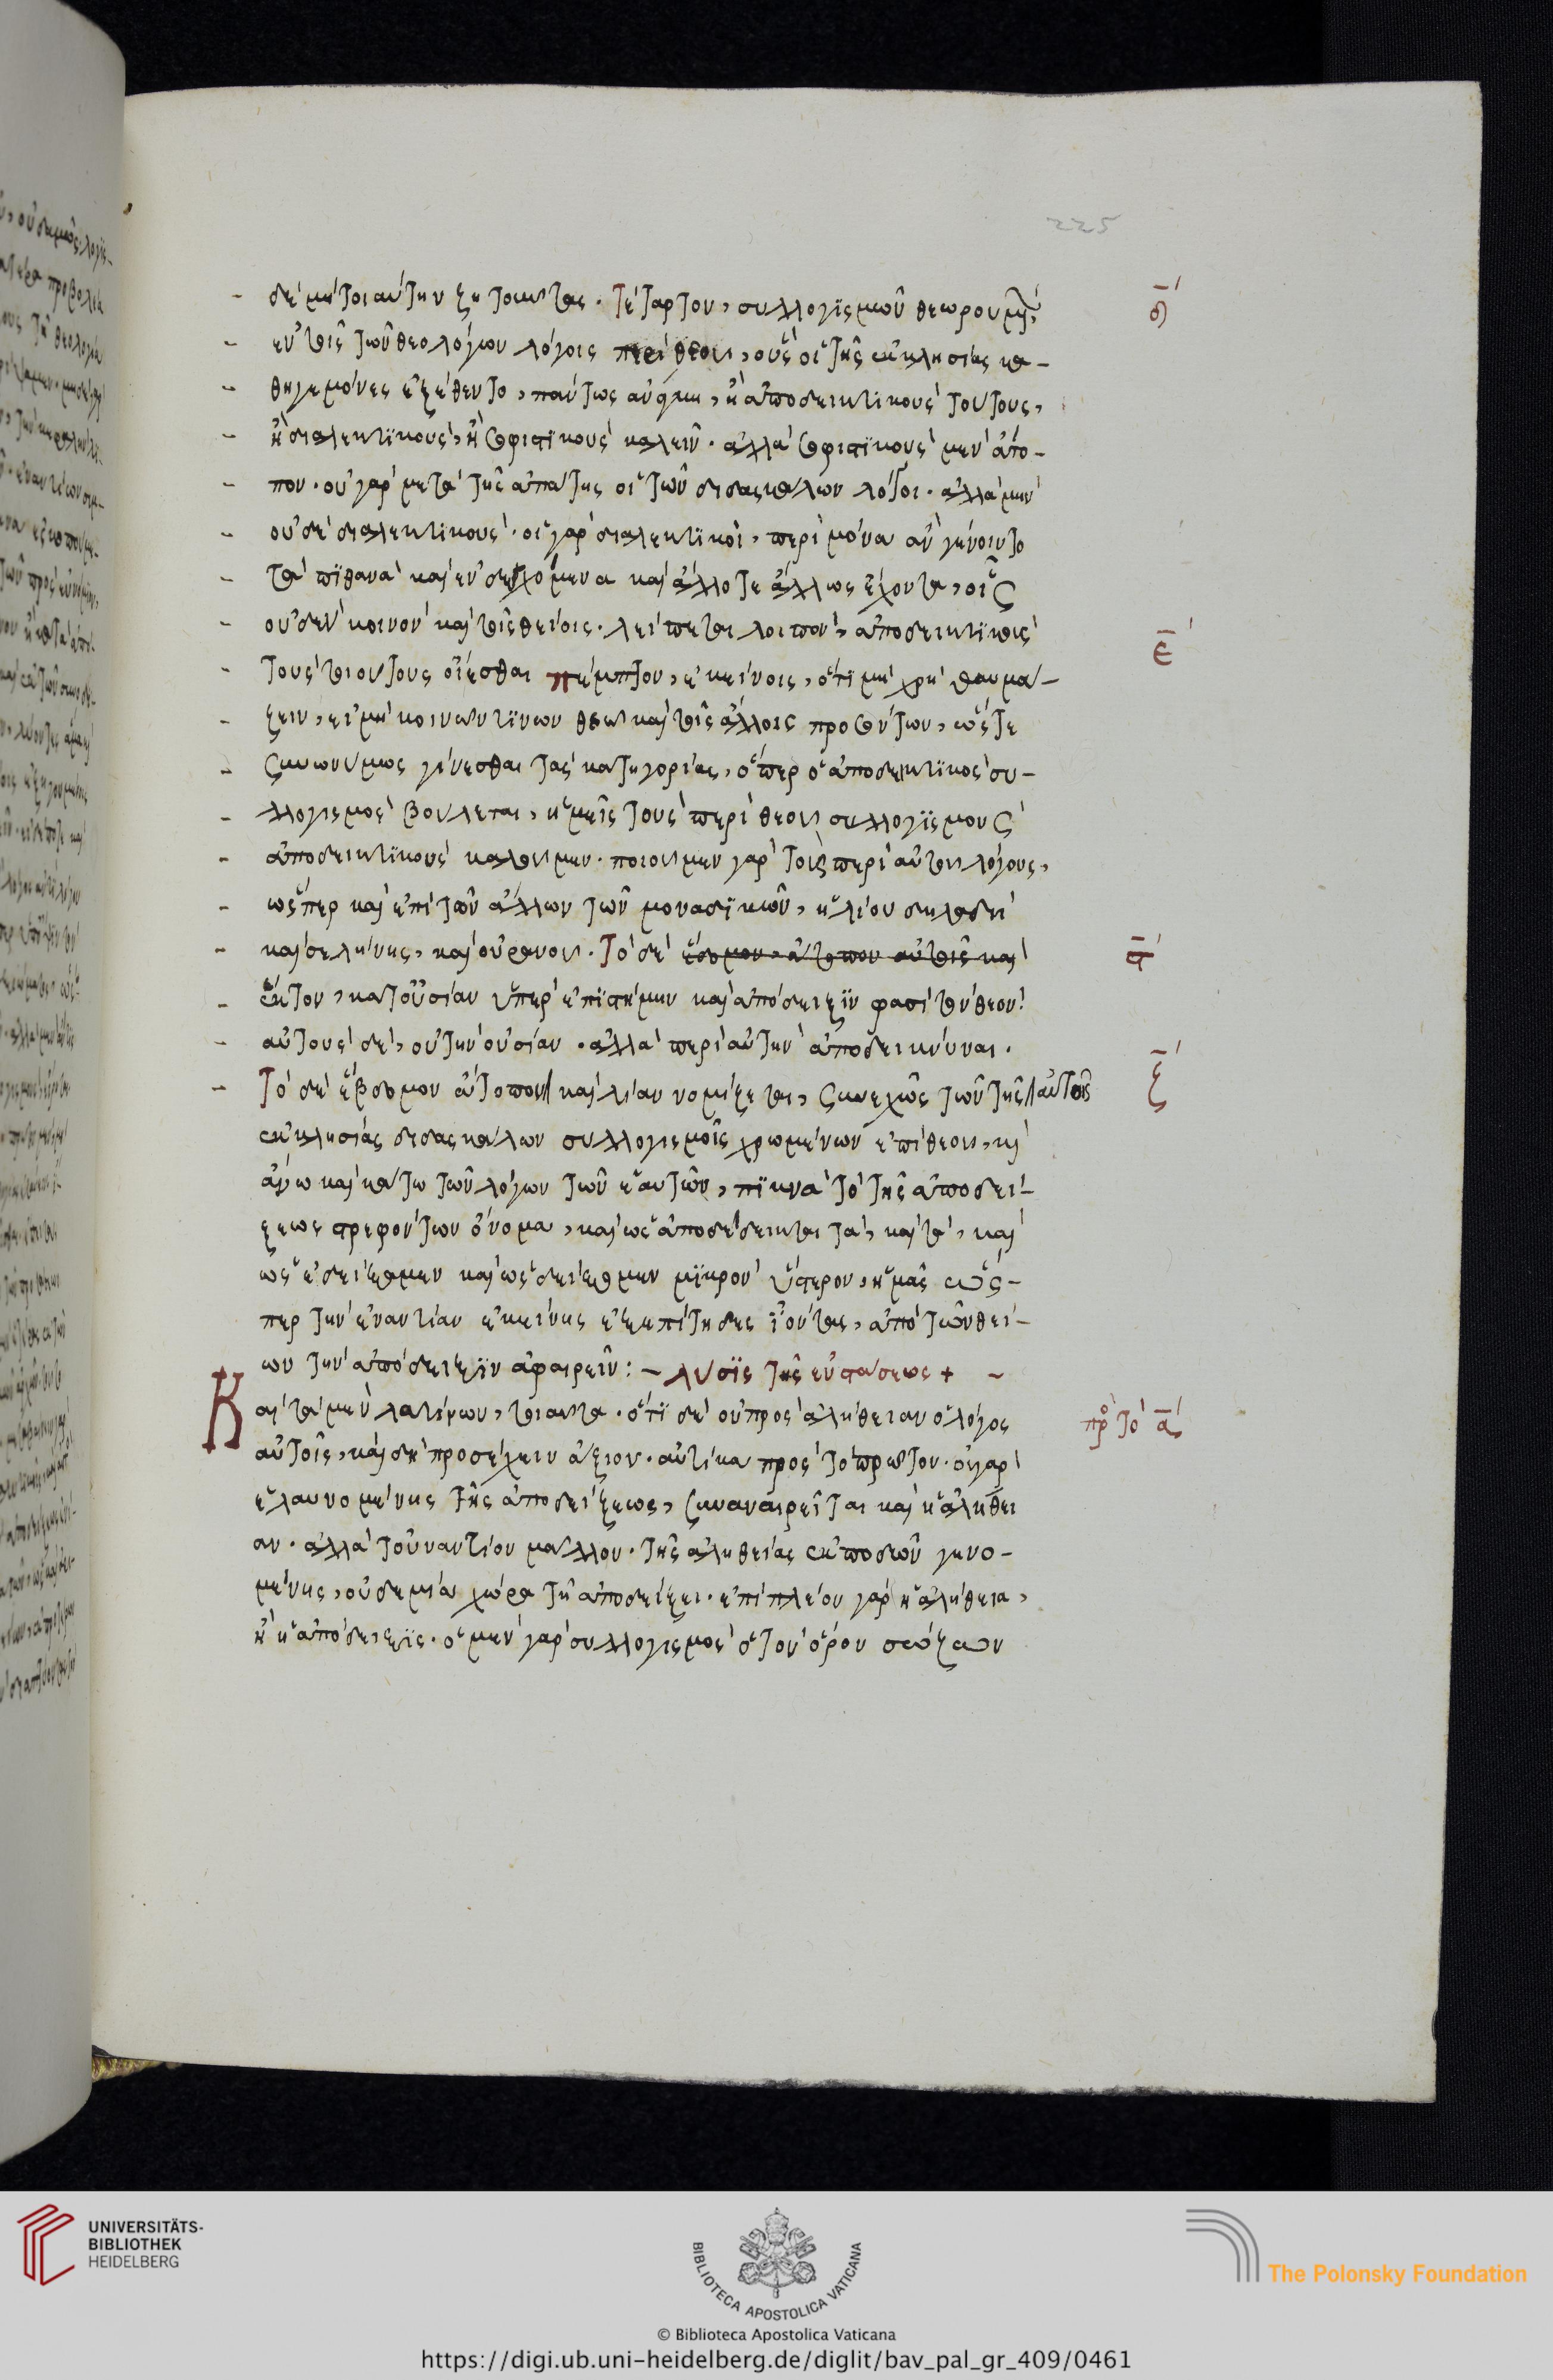 225
δὲ μὴ τοιαύτην ζητοῦντας. Τέταρτον, συλλογϊσμῶν θεωρουμ(έν)ων δ'
ἐν τοῖς τῶν θεολόγων λόγοις περὶ θεοῦ, οὓς οἱ τῆς ἐκκλησίας κα-
θηγεμόνες ἐξέθεντο, πάντως ἀνάγκη, ἢ ἀποδεικτικοὺς τούτους,
ἢ διαλεκτϊκοὺς, ἢ σοφιστϊκοὺς καλεῖν. ἀλλὰ σοφιστϊκοὺς μὲν ἄτο-
πον. οὐ γὰρ μετὰ τῆς ἀπάτης οἱ τῶν διδασκάλων λόγοι. ἀλλὰ μὴν
οὐδὲ διαλεκτικοὺς. οἱ γὰρ διαλεκτϊκοὶ, περὶ μόνα ἂν γένοιντο
τὰ πϊθανὰ καὶ ἐνδεχόμενα καὶ ἄλλοτε ἄλλως ἔχοντα, οἷς
οὐδὲν κοινὸν καὶ τοῖς θείοις. λείπεται λοιπὸν, ἀποδεικτϊκοὺς
τοὺς τοιούτους οἴεσθαι πέμπτον, ἐκείνοις, ὅτϊ μὴ χρὴ θαυμά- ε'
ζειν, εἰ μὴ κοινῶν τϊνων θεῷ καὶ τοῖς ἄλλοις προσόντων, ὥστε
συνωνύμως γίνεσθαι τὰς κατηγορίας, ὅπερ ὁ ἀποδεικτϊκὸς συ-
λλογισμὸς βούλεται, ἡμεῖς τοὺς περὶ θεοῦ συλλογϊσμοὺς
ἀποδεικτϊκοὺς καλοῦμεν. ποιοῦμεν γὰρ τοὺς περὶ αὐτοῦ λόγους,
ὥσπερ καὶ ἐπὶ τῶν ἄλλων τῶν μοναδϊκῶν, ἡλίου δηλαδὴ
καὶ σελήνης, καὶ οὐρανοῦ. Τὸ δὲ ἕβδομον, ἄτοπον αὐτοῖς καὶ ϛ'
ἕκτον, κατ' οὐσίαν ὑπὲρ ἐπϊστήμην καὶ ἀπόδειξϊν φασὶ τὸν θεὸν·
αὐτοὺς δὲ, οὐ τὴν οὐσίαν. ἀλλὰ περὶ αὐτὴν ἀποδεικνύναι.
Τὸ δὲ ἕβδομον ἄτοπον καὶ λίαν νομίζεται, συνεχῶς τῶν τῆς αὐτοῖς ζ'
ἐκκλησίας διδασκάλων συλλογισμοῖς χρωμένων ἐπὶ θεοῦ, καὶ
ἄνω καὶ κάτω τῶν λόγων τῶν ἑαυτῶν, πϊκνὰ τὸ τῆς ἀποδεί-
ξεως στρεφόντων ὄνομα, καὶ ὡς ἀποδέδεικται τὰ, καὶ τὰ, καὶ
ὡς ἐδείξαμεν καὶ ὡς δείξομεν μϊκρὸν ὕστερον, ἡμᾶς ὥσ-
περ τὴν ἐναντίαν ἐκείνης ἐξεπίτηδες ἰόντας, ἀπὸ τῶν θεί-
ων τὴν ἀπόδειξϊν ἀφαιρεῖν: – λύσϊς τῆς ἐνστάσεως + ~
Καὶ τὰ μὲν λατίνων, τοιαῦτα. ὅτϊ δὲ οὐ πρὸς ἀλήθειαν ὁ λόγος πρὸ(ς) τὸ α'
αὐτοῖς, καὶ δὴ προσέχειν ἄξιον. αὐτίκα πρὸς τὸ πρῶτον. οὐ γὰρ
ἐλαυνομένης τῆς ἀποδείξεως, συναναιρεῖται καὶ ἡ ἀλήθει
αν. ἀλλὰ τοὐναντίον μᾶλλον. τῆς ἀληθείας ἐκποδὼν γενο-
μένης, οὐδεμία χώρα τῇ ἀποδείξει. ἐπὶ πλέον γὰρ ἡ ἀλήθεια,
ἢ ἡ ἀπόδειξϊς. ὁ μὲν γὰρ συλλογισμὸς ὁ τὸν ὅρον σώζων
UNIVERSITÄTS-
BIBLIOTHEK
HEIDELBERG
BIBLIOTECA APOSTOLICA VATICANA
The Polonsky Foundation
© Biblioteca Apostolica Vaticana
https://digi.ub.uni-heidelberg.de/diglit/bav_pal_gr_409/0461